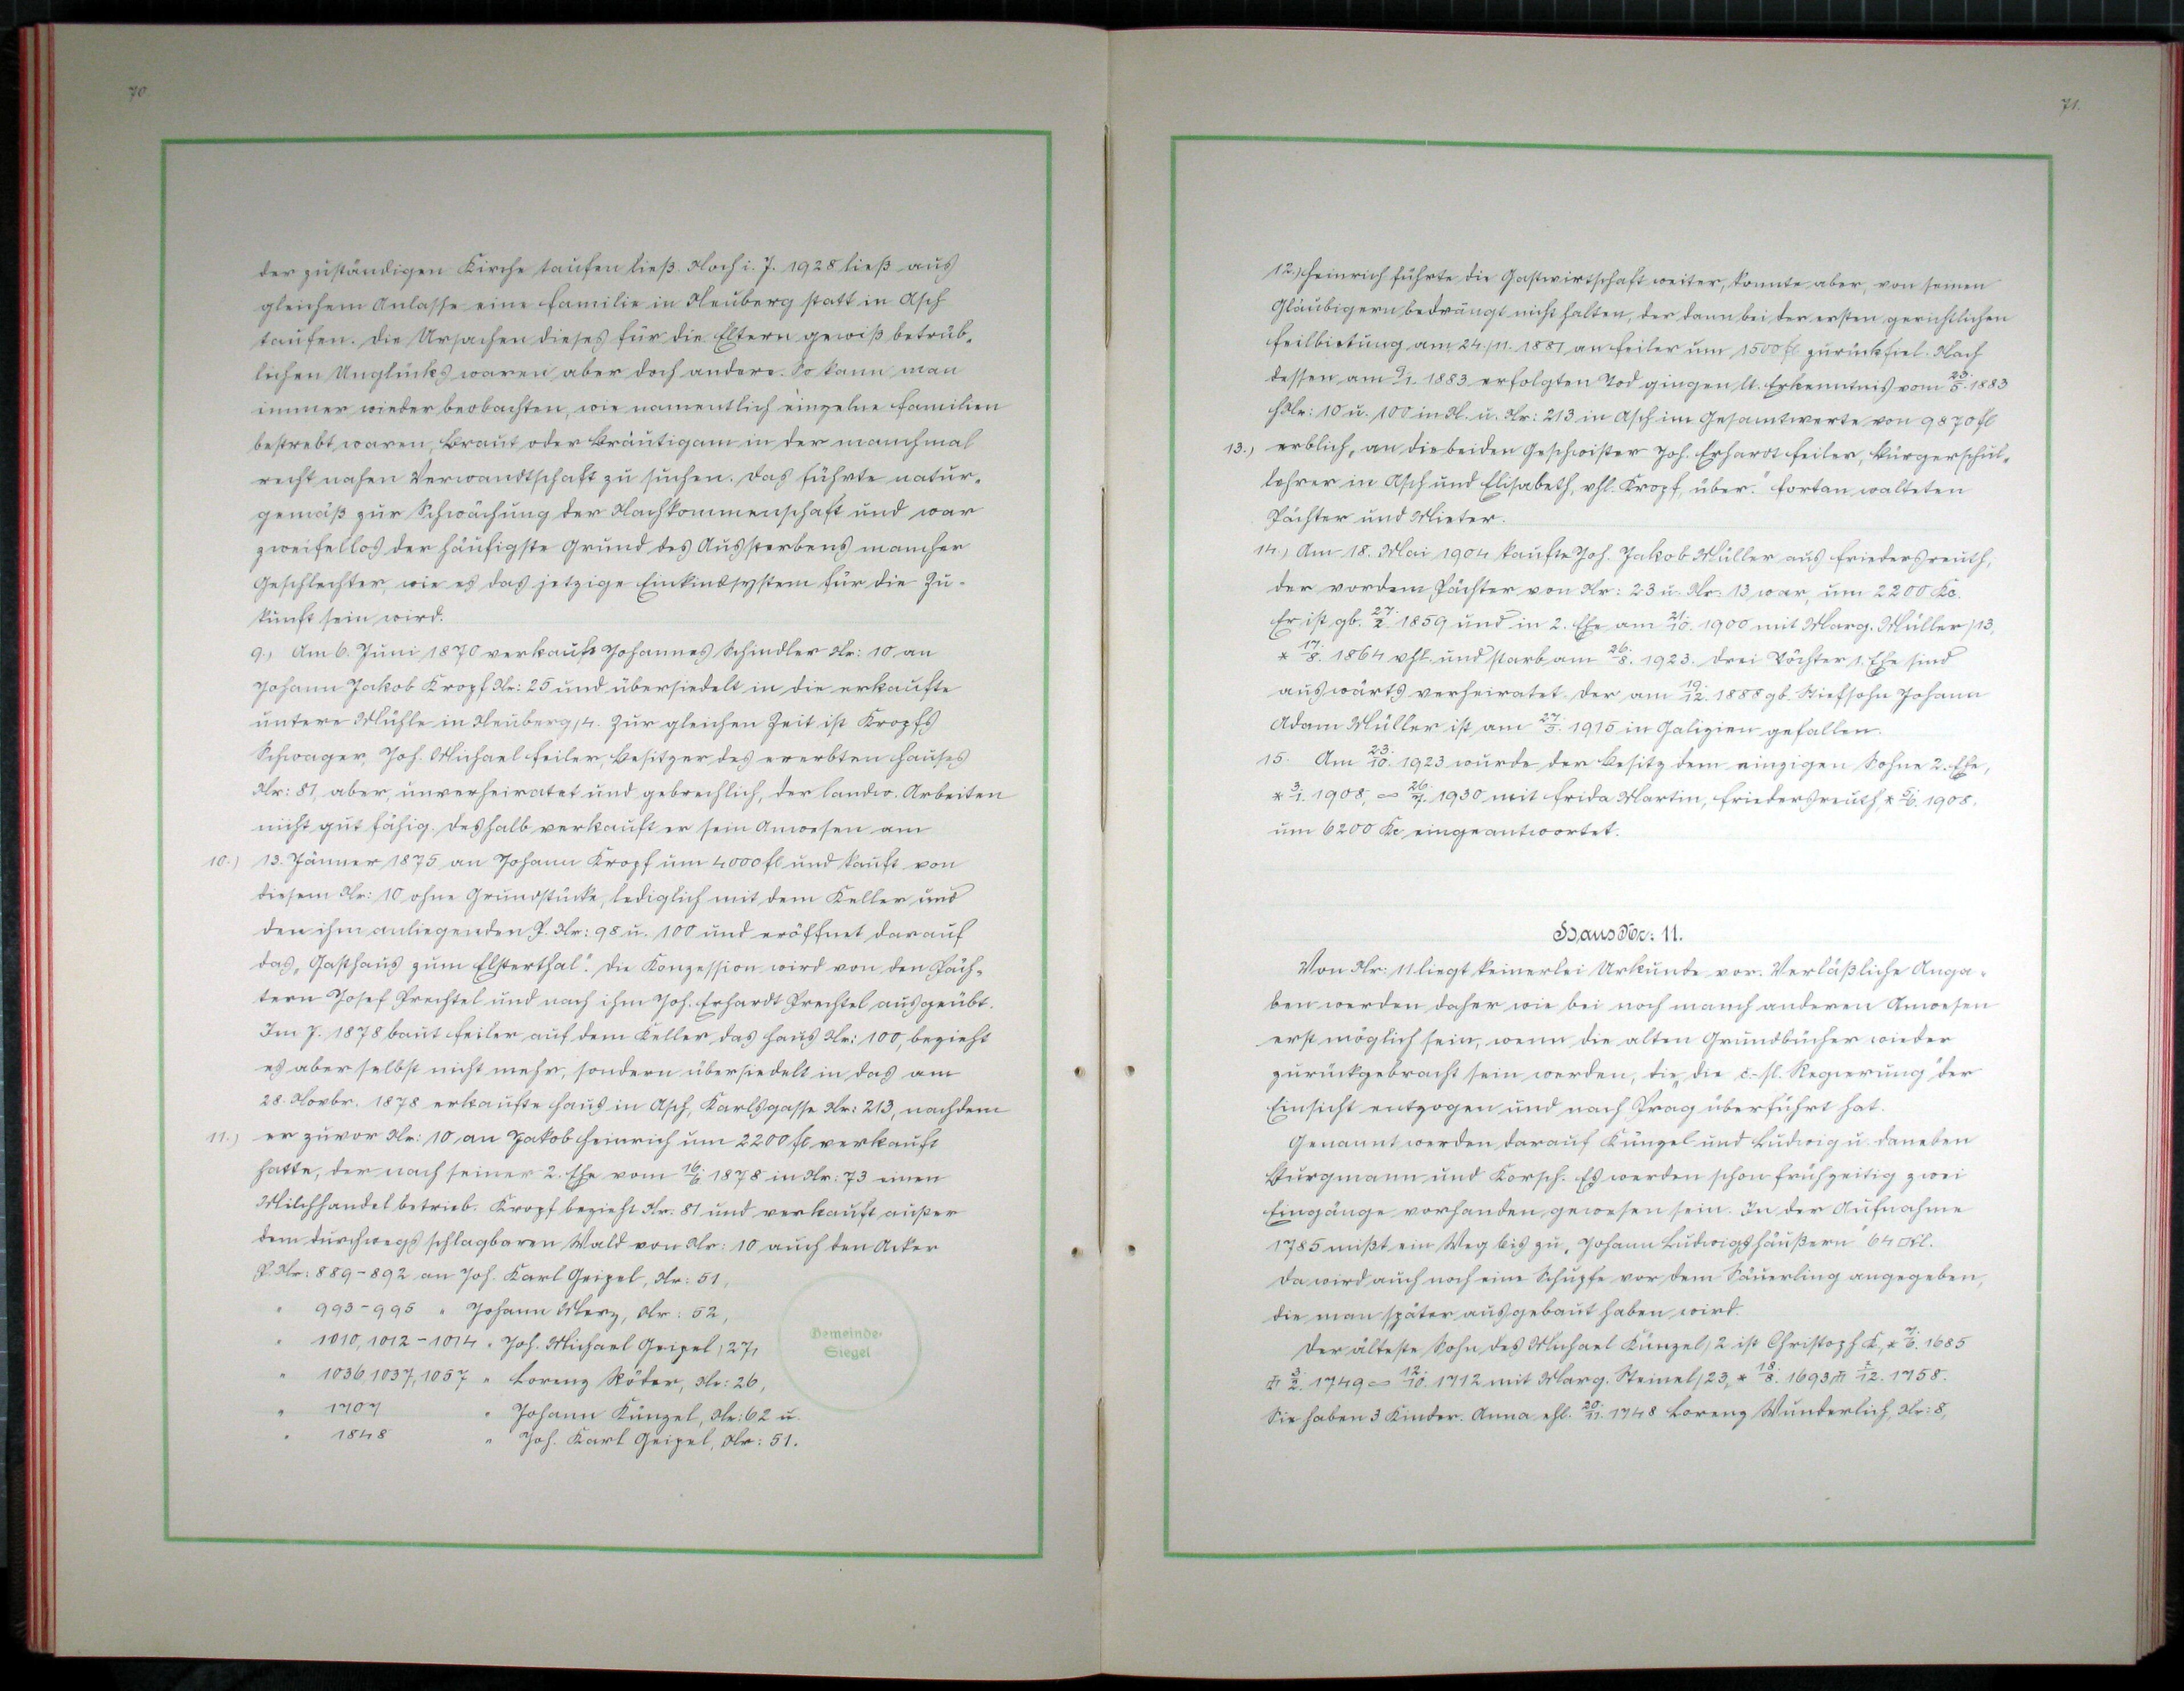 70.
der zuständigen Kirche taufen ließ. Noch i. J. 1928 ließ aus
gleichem Anlasse eine Familie in Neuberg statt in Asch
taufen. Die Ursachen dieses für die Eltern gewiß betrüb-
lichen Unglücks waren aber doch andere. So kann man
immer wieder beobachten, wie namentlich einzelne Familien
bestrebt waren, Braut oder Bräutigam in der manchmal
recht nahen Verwandtschaft zu suchen. Das führte natur-
gemäß zur Schwächung der Nachkommenschaft und war
zweifellos der häufigste Grund des Aussterbens mancher
Geschlechter, wie es das jetzige Einkindsystem für die Zu-
kunft sein wird.
9.) Am 6. Juni 1870 verkauft Johannes Schindler Nr: 10 an
Johann Jakob Kropf Nr: 25 und übersiedelt in die erkaufte
untere Mühle in Neuberg/4. Zur gleichen Zeit ist Kropfs
Schwager, Joh. Michael Feiler, Besitzer des ererbten Hauses
Nr: 81, aber, unverheiratet und gebrechlich, der landw. Arbeiten
nicht gut fähig. Deshalb verkauft er sein Anwesen am
10.) 13. Jänner 1875 an Johann Kropf um 4000 fl und kauft von
diesem Nr: 10 ohne Grundstücke, lediglich mit dem Keller und
den ihm anliegenden P. Nr: 98 u. 100 und eröffnet darauf
das „Gasthaus zum Elsterthal". Die Konzession wird von den Päch-
tern Josef Prechtel und nach ihm Joh. Erhardt Prechtel ausgeübt.
Im J. 1878 baut Feiler auf dem Keller das Haus Nr: 100, bezieht
es aber selbst nicht mehr, sondern übersiedelt in das am
28. Novbr. 1878 erkaufte Haus in Asch, Karlsgasse Nr: 213, nachdem
11.) er zuvor Nr: 10 an Jakob Heinrich um 2200 fl verkauft
hatte, der nach seiner 2. Ehe vom 1878 in Nr: 73 einen
Milchhandel betrieb. Kropf bezieht Nr. 81 und verkauft außer
dem durchwegs schlagbaren Wald von Nr: 10 auch den Acker
P. Nr: 889-892 an Joh. Karl Geipel, Nr: 51,
" 993-995 " Johann Merz, Nr: 52,
" 1010, 1012-1014 " Joh. Michael Geipel/27,
" 1036, 1037, 1057 " Lorenz Röder, Nr: 26,
" 1707 " Johann Künzel, Nr: 62 u.
" 1848 " Joh. Karl Geipel, Nr: 51.
Gemeinde-
Siegel
71.
12.) Heinrich führte die Gastwirtschaft weiter, konnte aber, von seinen
Gläubigern bedrängt nicht halten, der dann bei der ersten gerichtlichen
Feilbietung am 24./11. 1881 an Feiler um 1500 fl zurückfiel. Nach
dessen am 9/1. 1883 erfolgten Tod gingen lt. Erkenntnis vom 23./5. 1883
HNr: 10 u. 100 in N. u. Nr: 213 in Asch im Gesamtwerte von 9870 fl
13.) erblich „an die beiden Geschwister Joh. Erhardt Feiler, Bürgerschul-
lehrer in Asch und Elisabeth, vhl. Kropf, über." Fortan walteten
Pächter und Mieter.
14.) Am 18. Mai 1904 kaufte Joh. Jakob Müller aus Friedersreuth,
der vordem Pächter von Nr: 23 u. Nr: 13 war, um 2200 Kc.
Er ist gb. 27./2. 1859 und in 2. Ehe am 21./10. 1900 mit Marg. Müller/13,
* 17./8. 1864 vhl. und starb am 26./8. 1923. Drei Töchter 1. Ehe sind
auswärts verheiratet. Der am 19./12. 1888 gb. Stiefsohn Johann
Adam Müller ist am 27./5. 1915 in Galizien gefallen.
15. Am 23./10. 1923 wurde der Besitz dem einzigen Sohne 2. Ehe,
* 3/1. 1908, ∞ 26./7. 1930 mit Frida Martin, Friedersreuth * 5/6. 1908.
um 6200 Kc eingeantwortet.
Haus Nr: 11.
Von Nr: 11 liegt keinerlei Urkunde vor. Verläßliche Anga-
ben werden daher wie bei noch manch anderen Anwesen
erst möglich sein, wenn die alten Grundbücher wieder
zurückgebracht sein werden, die die č.-sl. Regierung der
Einsicht entzogen und nach Prag überführt hat.
Genannt werden darauf Künzel und Ludwig u. daneben
Burgmann und Korsch. Es werden schon frühzeitig zwei
Eingänge vorhanden gewesen sein. In der Aufnahme
1785 mißt ein Weg bis zu „Johann Ludwigs häußern" 64 □Kl.
Da wird auch noch eine Schupfe vor dem Säuerling angegeben,
die man später ausgebaut haben wird.
Der älteste Sohn des Michael Künzel/2 ist Christoph K, * 7./6. 1685
3./2. 1749 ∞ 12./10. 1712 mit Marg. Steinel/23, * 18./8. 1693 /12. 1758.
Sie haben 3 Kinder. Anna ehl. 20./11. 1748 Lorenz Wunderlich, Nr: 8,